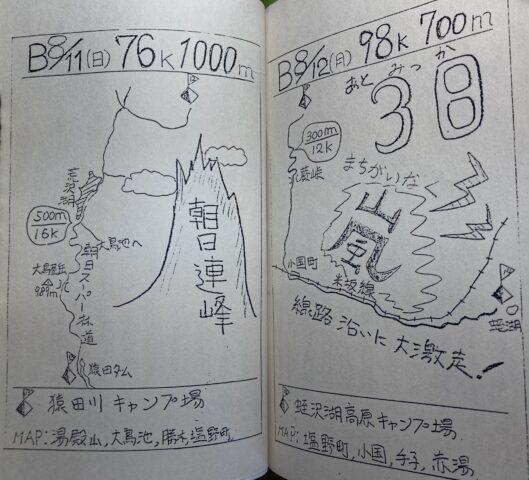 B 8/11(日) 76k 1000m
荒沢湖
500m
16k
大鳥池へ
大鳥屋岳
989m
朝日スーパー林道
朝日連峰
猿田ダム
猿田川キャンプ場
MAP:湯殿山,大鳥池,勝木,塩野町,
B 8/12(月) 98k 700m
あとみっか
3日
300m
12k
蕨峠
まちがいな
嵐
小国町
米坂線
線路沿いに大激走!
蛭湖
蛭沢湖高原キャンプ場
MAP:塩野町,小国,手子,赤湯